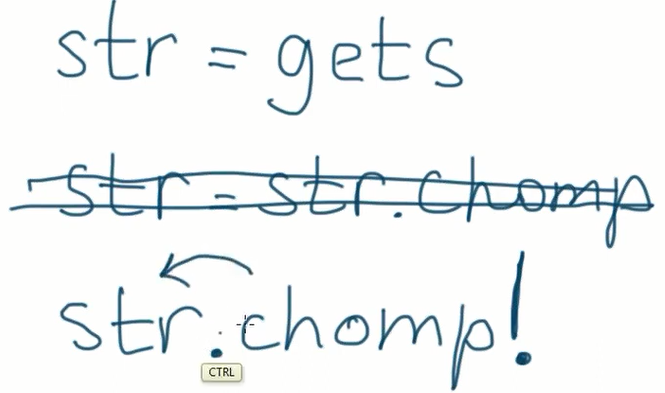 str = gets
str = str.chomp
str.chomp!
CTRL